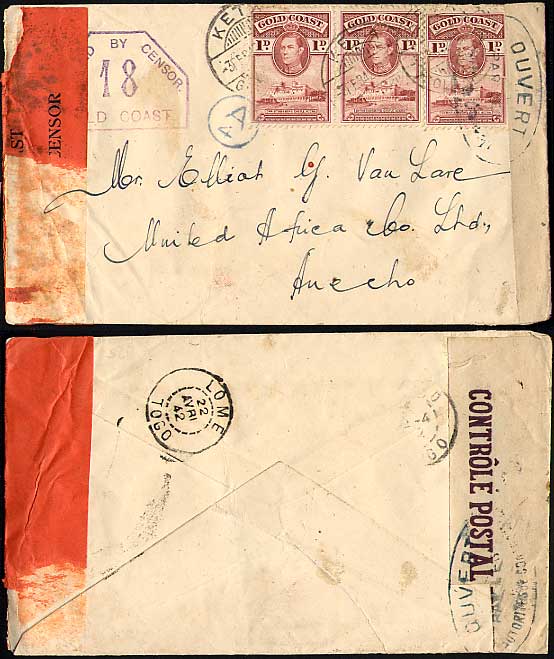 BY CENSOR
18
LD COAST
CENSOR
KET
GOLD COAST
1D 1D
GOLD COAST
1D 1D
GOLD COAST
1D 1D
OUVERT
AA
Mr. Elliot G. Van Lare
United Africa Co. Ltd,
Anecho
LOME
22
AVRI
42
TOGO
CONTRÔLE POSTAL
OUVERT